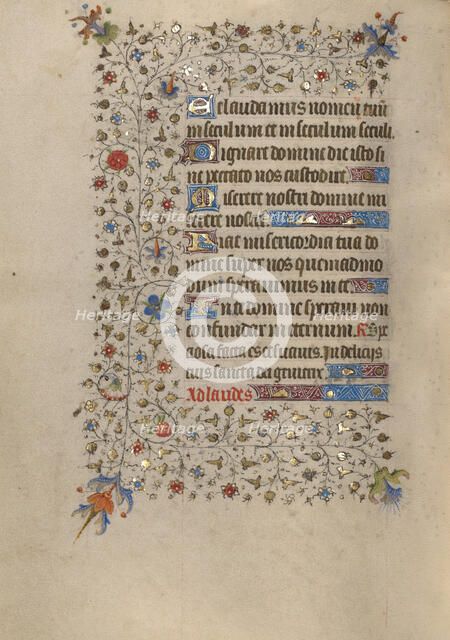 Et laudamus nomen tuū
in seculum et in seculum seculi.
Dignare domine die isto si
ne peccato nos custodire.
Miserere nostri domine mi
serere nostri.
Fiat misericordia tua do
mine super nos quemadmo
dum speravimus in te.
In te domine speravi non
confundar in eternum. Spe
ciosa facta es et suavis. In deliciis
tuis sancta dei genitrix.
Ad laudes
Heritage Heritage
Heritage Heritage Heritage
Heritage Heritage